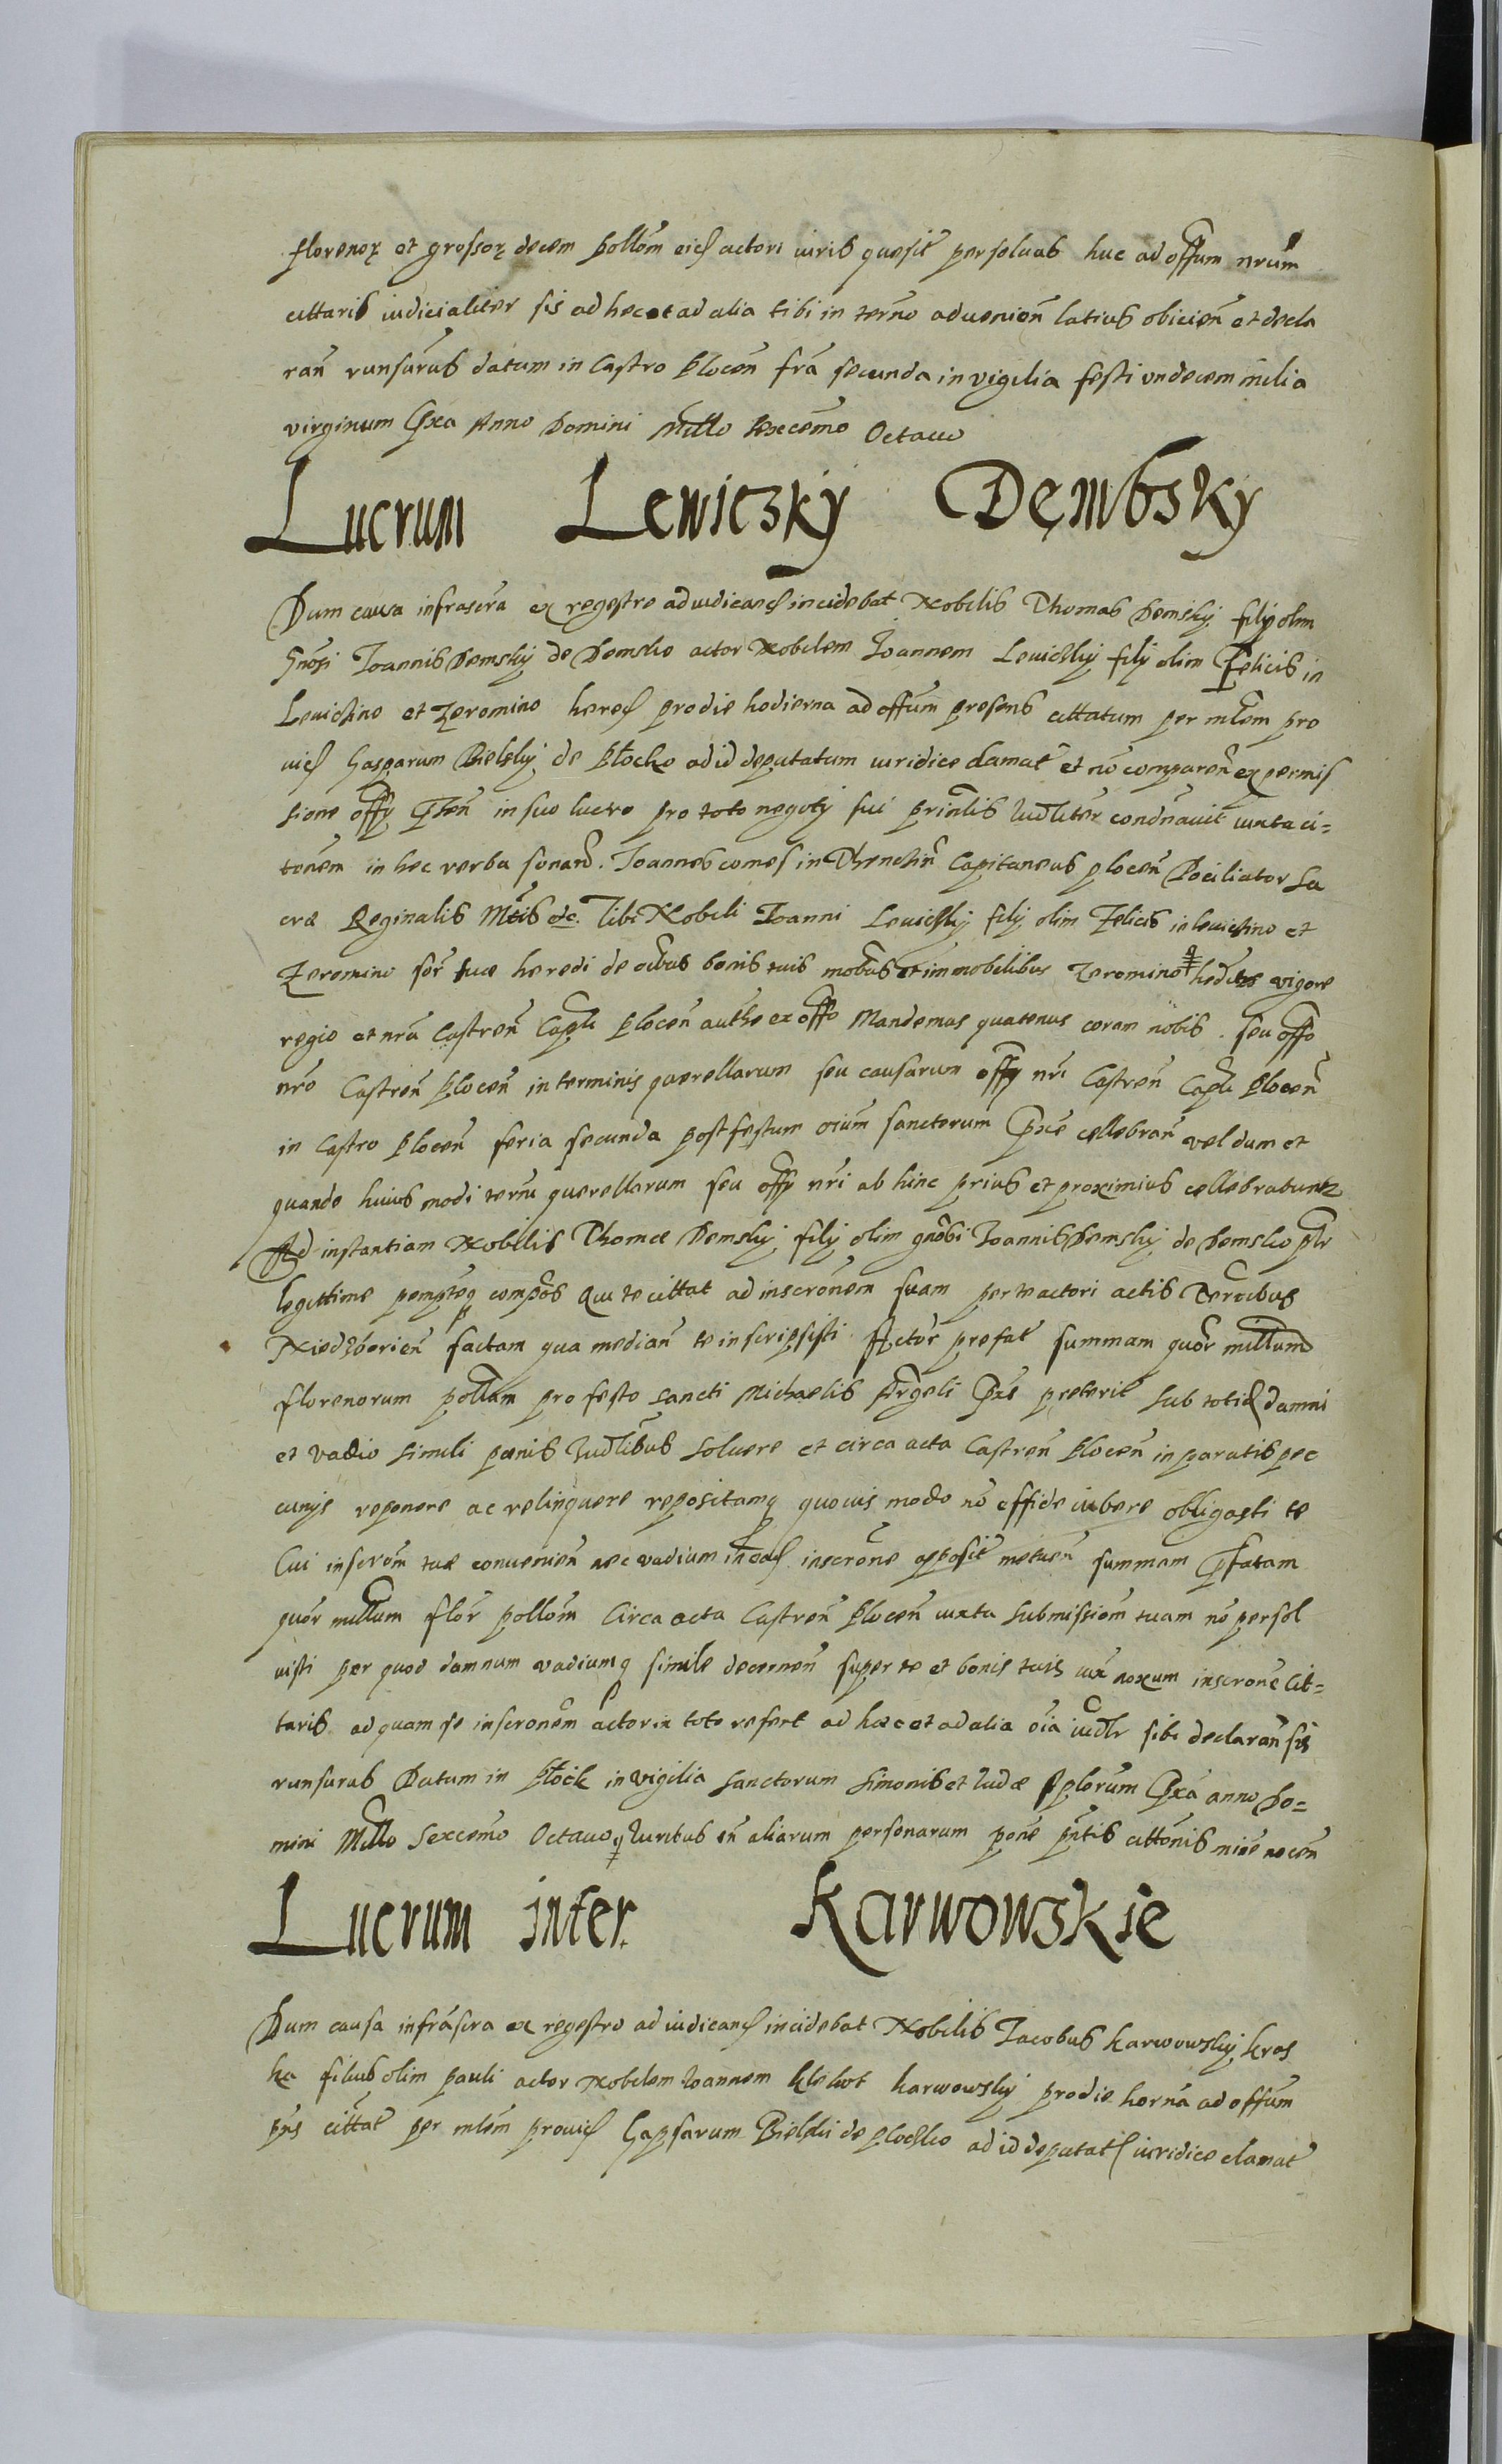 florenor et grossor decem pollom eid actori iuris quesit persoluas huc ad offum nrum
cittaris iudicialiter sis ad hec et ad alia tibi in termo aduenien latius obicien et decla
ran runsurus datum in Castro Plocen fra secunda in vigilia festi undecem milia
virginum Pxa Anno Domini Millo Sexcemo Octauo
Lucrum Lewiczky Dembsky
Dum causa infrascra ex regestro ad iudicand incidebat Nobilis Thomas Demsky filij olim
Gnosi Ioannis Demsky de Demsko actor Nobilem Ioannem Leuickij filij olim Felicis in
Leuickino et Zeromino hered pro die hodierna ad offum presens cittatum per mlem pro
uid Gasparum Bielskij de Plocko ad id deputatum iuridice clamat et no comparen ex permis
sione offy Pten in suo lucro pro toto negotij sui prinlis Iudliter condnauit iuxta ci=
tonem in hec verba sonand. Ioannes comes in Thenchin Capitaneus plocen Pociliator Sa
crae Reginalis Mtis etc. Tibi Nobili Ioanni Leuickij filij olim Felicis in leuickino et
Zeromino sor suae heredi de oibus bonis tuis mobus et immobilibus Zeromino hedits vigore
regio et nra Castren Capli Plocen authe ex offo Mandamus quatenus coram nobis seu offo
nro Castren Plocen in terminis querellarum seu causarum offy nri Castren Capli Plocen
in Castro Plocen feria secunda post festum oium sanctorum Pxe cellebran vel dum et
quando huius modi termi querellarum seu offy nri ab hinc prius et proximius cellebrabuntz
Ad instantiam Nobilis Thomae Demsky filij olim gnobi Ioannis Demsky de Demsko plr
legittime pempteq compos Qui te cittat ad inscronem suam per te actori actis Terribus
Niedzborien factam qua median te inscripsisti Actor prefat summam quor millium
florenorum pollam pro festo sancti Michaelis Argeli Pxe preterit sub totid damni
et vadio simili poenis Iudlibus soluere et circa acta Castren Plocen in paratis pec
cunijs reponere ac relinquere repositamq quouis modo no effide iubere obligasti te
Cui inscrom tuae conuenien nec vadium in ead inscrone apposit metuen summam Pfatam
quor millium flor pollom Circa acta Castren Plocen iuxta submissiom tuam no persol
uisti per quod damnum vadiumq simile decernen super te et bonis tuis iux noxum inscrone Cit=
taris ad quam se inscronem actor in toto refert ad haec et ad alia oia iudlr sibi declaran sis
runsurus Datum in Plock in vigilia Sanctorum Simonis et Iudae Applorum Pxa anno Do=
mini Millo Sexcemo Octauo q Iuribus in aliarum personarum pone pntis cittonis mine nocen
Lucrum inter Karwowskie
Dum causa infrascra ex regestro ad iudicand incidebat Nobilis Iacobus Karwowsky kros
ka filius olim pauli actor Nobilem Ioannem klekot karwowsky pro die horna ad offum
pns cittat per mlem prouid Gapsarum Bielski de plocko ad id deputat iuridice clamat